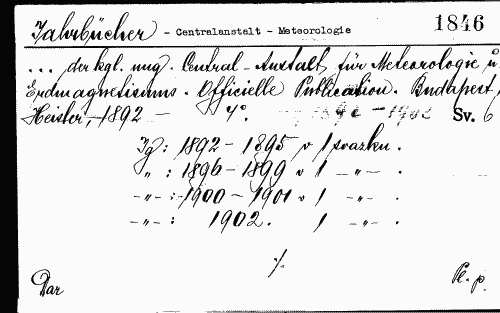 Jahrbücher - Centralanstalt - Meteorologie 1846
... der kgl. ung. Central-Anstalt für Meteorologie u.
Erdmagnetismus. Officielle Publication. Budapest,
Heisler, 1892 - 4°. 1892 - 1902 Sv. 6
Jg: 1892 - 1895 v 1 svazku.
" : 1896 - 1899 v 1 - " - .
- " - : 1900 - 1901 v 1 - " - .
- " - : 1902. 1 - " - .
./.
Dar Pl. p.